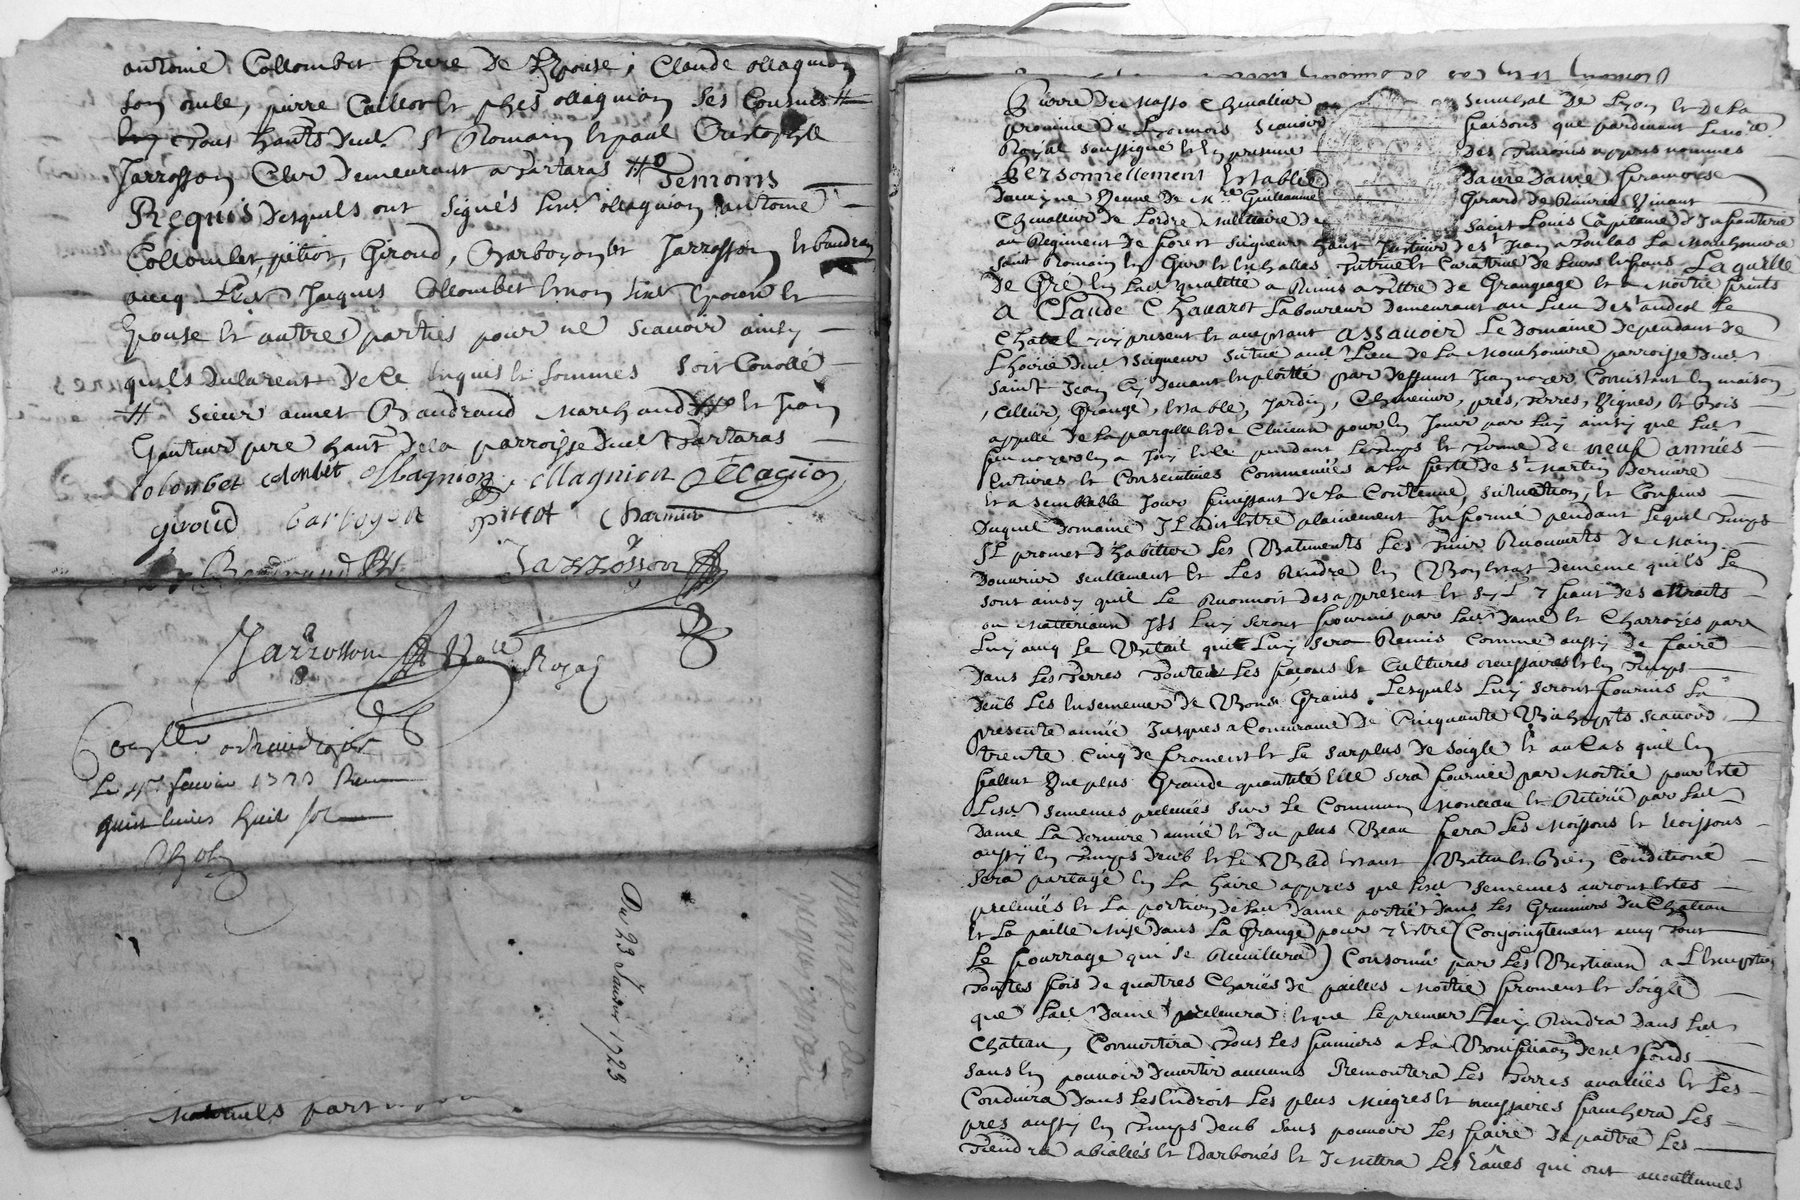 antoine Collombet frere de Lepouse, Claude ollagnion
son oncle, pierre Caillot et ollagnion ses Cousins #
tous hants dud. St Romain et paul Christophle
Jarrosson Clerc demeurant a Tartaras # Temoins
Requis desquels ont signés Led. ollagnion antoine
Collombet, pitiot, Giroud, Barboyon et Jarrosson et baudran
avecq Led. Jaques Collombet et non Led. Epoux et
Epouse et autres parties pour ne scavoir ainsy
quils declarent de ce enquis et sommes soit Conollé
# sieur aimet Baudrand Marchand # et Jean
Gautier pere hant de la parroisse dud. Tartaras
Colombet colonbet ollagnion ollagnion ollagnion
giroud barboyon pitiot Charmier
Baudrand Jarrosson
Jarrosson No.re Royal
Con.llé a
Le fevrier 1723 Reçu
livres huit sol
Du 23 Janvier 1723
Mariage
Maternels part
Pierre Dumasso Chevalier Senechal de Lyon et de La
province de Lyonnois Scavoir faisons que pardevant Le no.re
Royal soussigné et en presence des Temoins appres nommés
Personnellement Establie Dame Dame Francoise
Daveyne Veuve de M.re Guillaume Girard de Riverie Vivant
Chevalier de Lordre Militaire de Saint Louis Capitaine d'Infanterie
au Regiment de forest Seigneur haut Justicier de St Jean a Toulas La Mouchonniere
saint Romain en Gier et Echallas Tutrice et Curatrice de Leurs Enfans Laquelle
de Gré en Lad. qualitté a Remis a Tittre de Grangeage et a Moitié fruits
a Claude Chavarot Laboureur demeurant au Lieu de St andeol Le
Chatel icy present et aceptant assavoir Le domaine dependant de
L'hoirie dud. Seigneur Sittué aud. Lieu de La Mouchonniere parroisse dud.
Saint Jean Cy devant Exploitté par deffunt Jean noyer Consistant en maison
, Cellier, Grange, Estable, Jardin, Cheneviers, prés, Terres, Vignes, et Bois
appellé de La et de pour en Jouir par Luy ainsy que Led.
feu noyer en a Jouy et ce pendant Le temps et Terme de neuf années
Entieres et Consecutives Commencées a La feste de St Martin derniere
et a semblable Jour finissant de La Contenue, Situation, et Confins
duquel domaine Il a dit Estre plainement Informé pendant Lequel Temps
Il promet d'habitter Les Batiments Les Tenir Recouverts de Main
douvrier seulement et Les Rendre en Bon Estat de meme quils Le
sont ainsy quil Le Reconnoit des appresent et sy Il y faut des attraits
ou Matteriaux Ils Luy seront fournis par Lad. Dame et Charroyés par
Luy avecq Le Betail qui Luy sera Remis Comme aussy de faire
dans Les Terres Toutes Les façons et Cultures necessaires et en Temps
deub Les Ensemencer de Bons Grains Lesquels Luy seront fournis La
presente année Jusques a Concurrance de Cinquante Bichepts scavoir
trente Cinq de froment et Le surplus de Soigle et au Cas quil en
fallut Une plus Grande quantité Elle sera fournie par Moitié pour Estre
Lesd. semences prelevées sur Le Commun Monceau et Retirée par Lad.
dame La derniere année et du plus Beau fera Les Moissons et
aussy en Temps deub et Le Bled Estant Battu et Bien Conditioné
sera partagé en La haire appres que Lesd. semences auront Estes
prelevées et La portion de Lad. dame portée dans Les Greniers du Chateau
et La paille Mise dans La Grange pour y Estre (Conjoingtement avecq tout
Le fourrage qui se Recueillera) Consomée par Les Bestiaux a L'Exception
Touttes fois de quatres Chariës de pailles Moitié froment et Soigle
que Lad. Dame prelevera et que Le preneur Luy Rendra dans Led.
Chateau, Convertira Tous Les fumiers a La Boniffication desd. fonds
sans en pouvoir divertir aucuns Remontera Les Terres avallées et Les
Conduira dans Les Endroit Les plus Maigres et necessaires fauchera Les
pres aussy en Temps deub sans pouvoir Les faire depaitre Les
Tiendra abialiés et Edarbonés et Jettera Les Eaües qui ont accoutumés